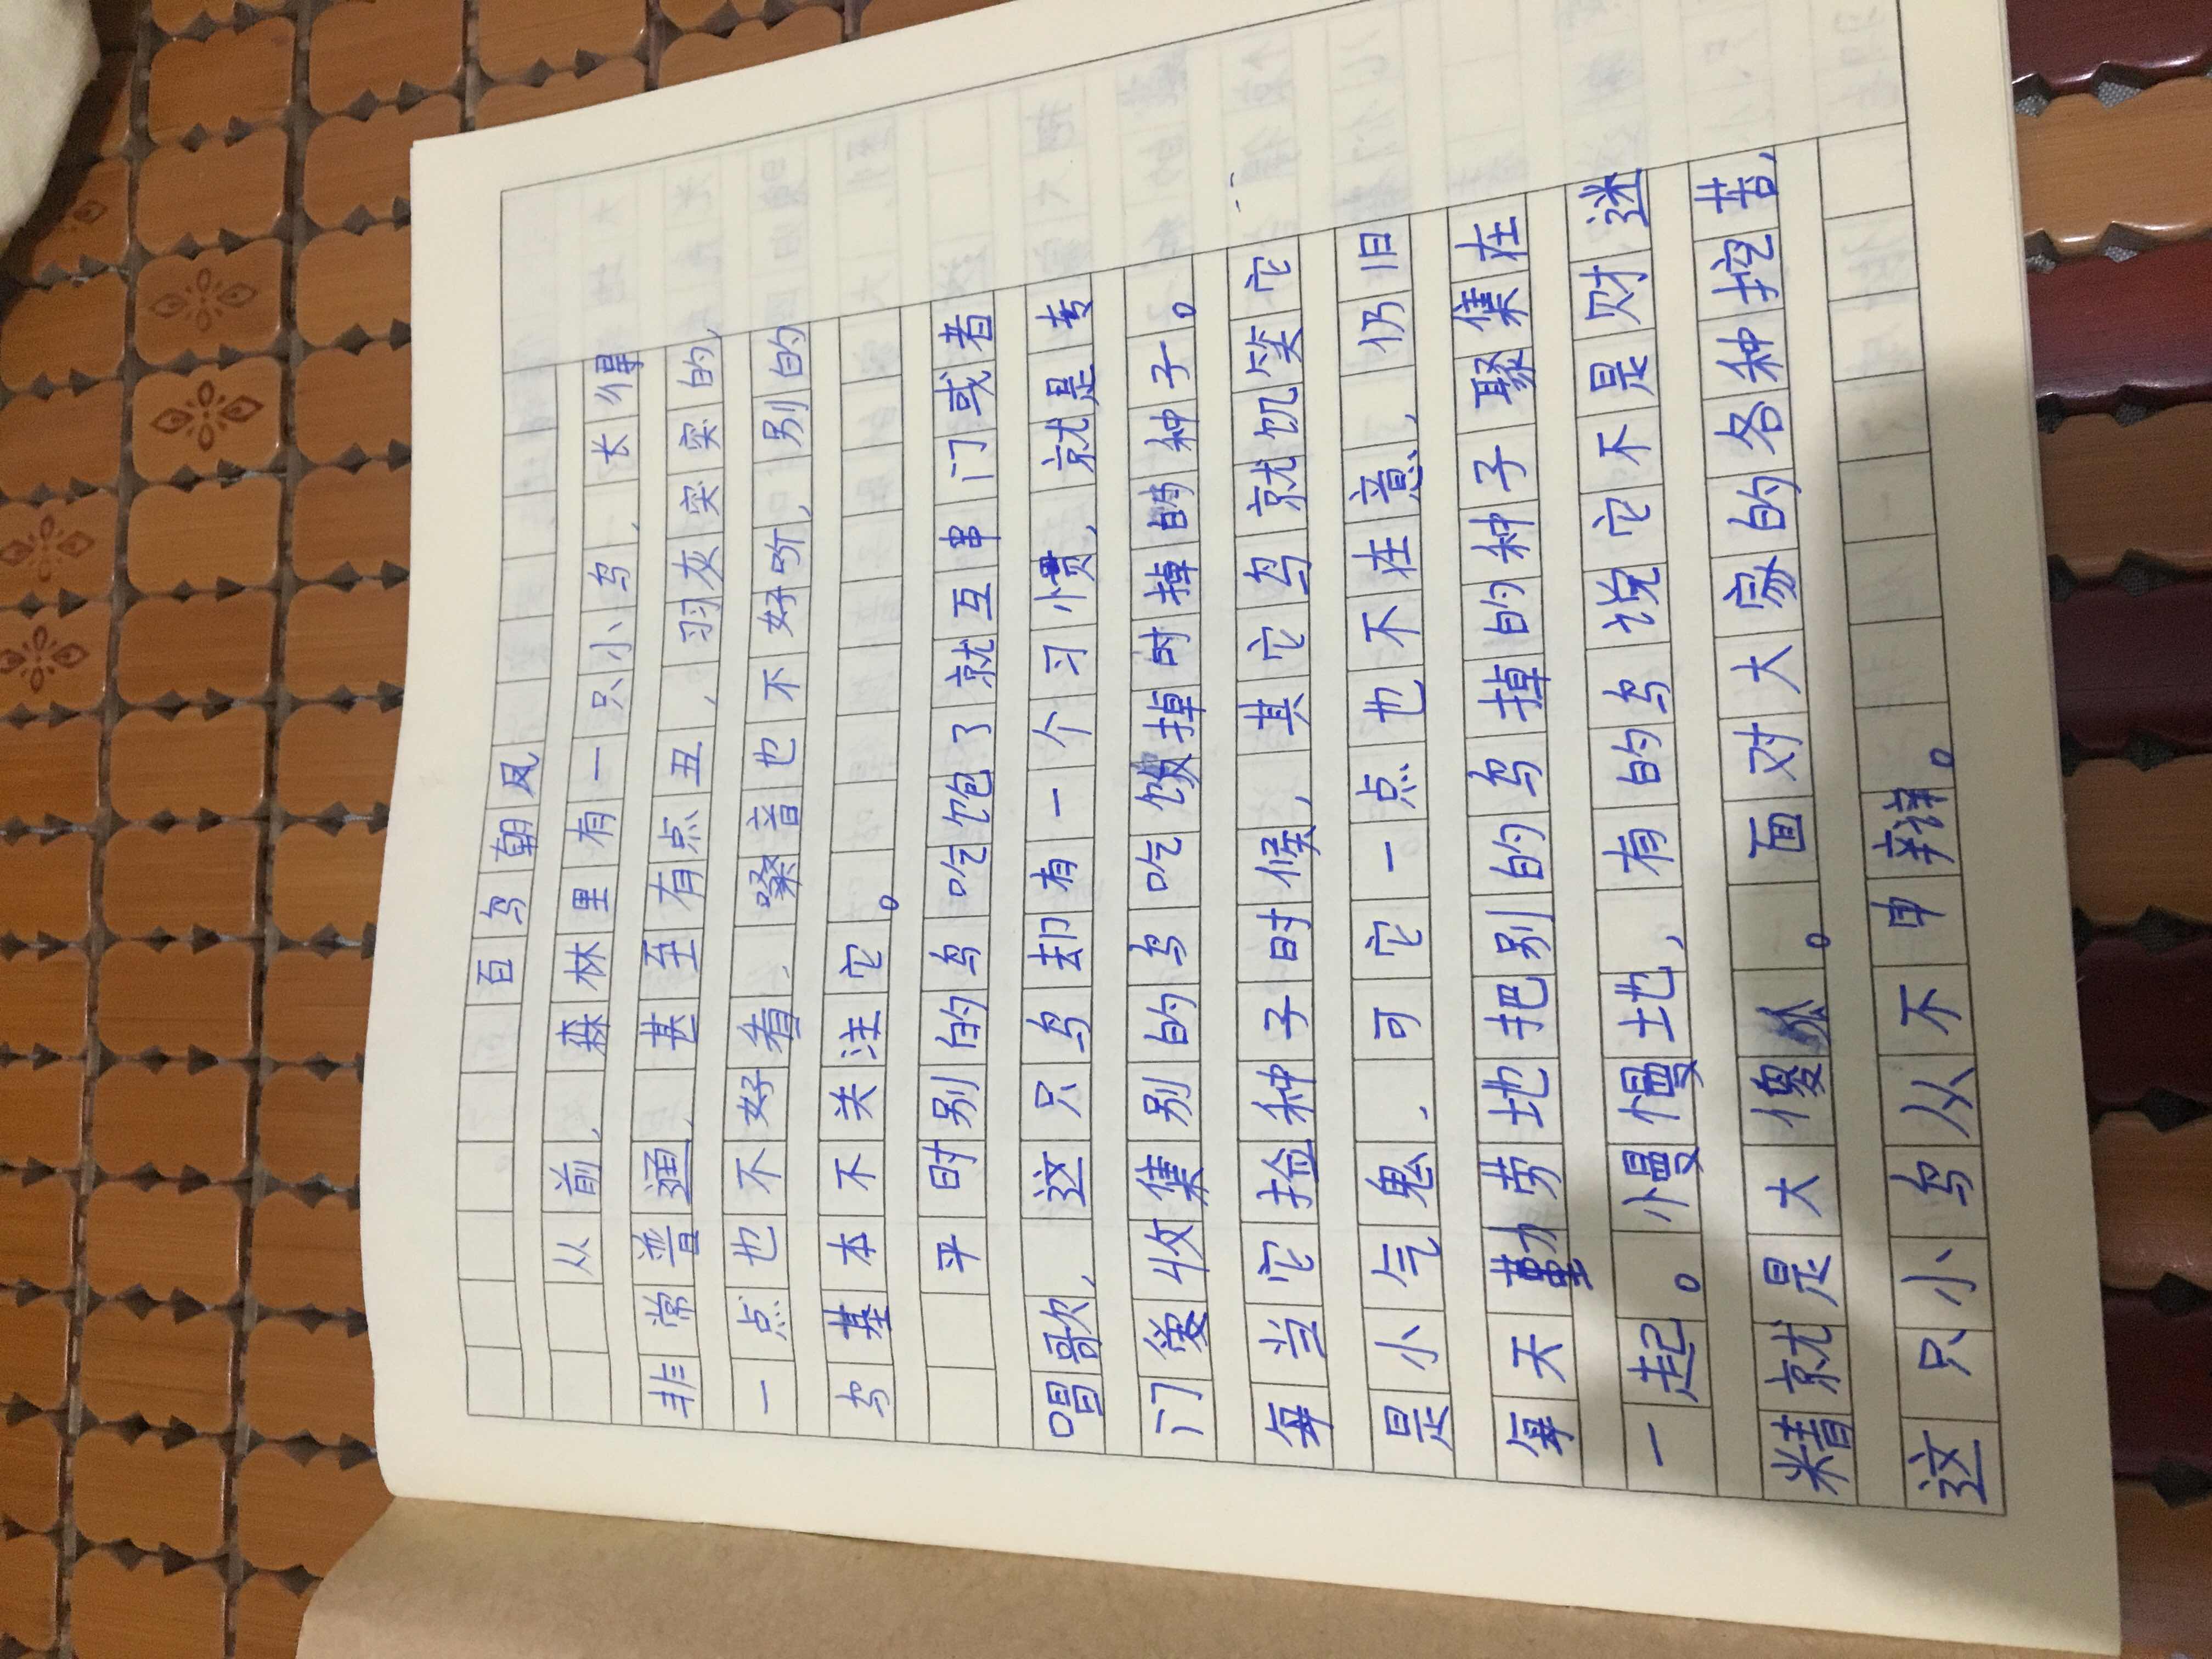 百鸟朝凤
从前，森林里有一只小鸟，长得
非常普通，甚至有点丑，羽灰突突的，
一点也不好看，嗓音也不好听，别的
鸟基本不关注它。
平时别的鸟吃饱了就互串门或者
唱歌，这只鸟却有一个习惯，就是专
门收集别的鸟吃饭掉时掉的种子。
每当它捡种子时候，其它鸟就饥笑它
是小气鬼，可它一点也不在意，仍旧
每天勤劳地把别的鸟掉的种子聚集在
一起。慢慢地，有的鸟说它不是财迷
精就是大傻。面对大家的各种挖苦，
这只小鸟从不申辩。